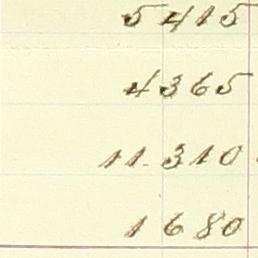 5415
4365
11.310
1680